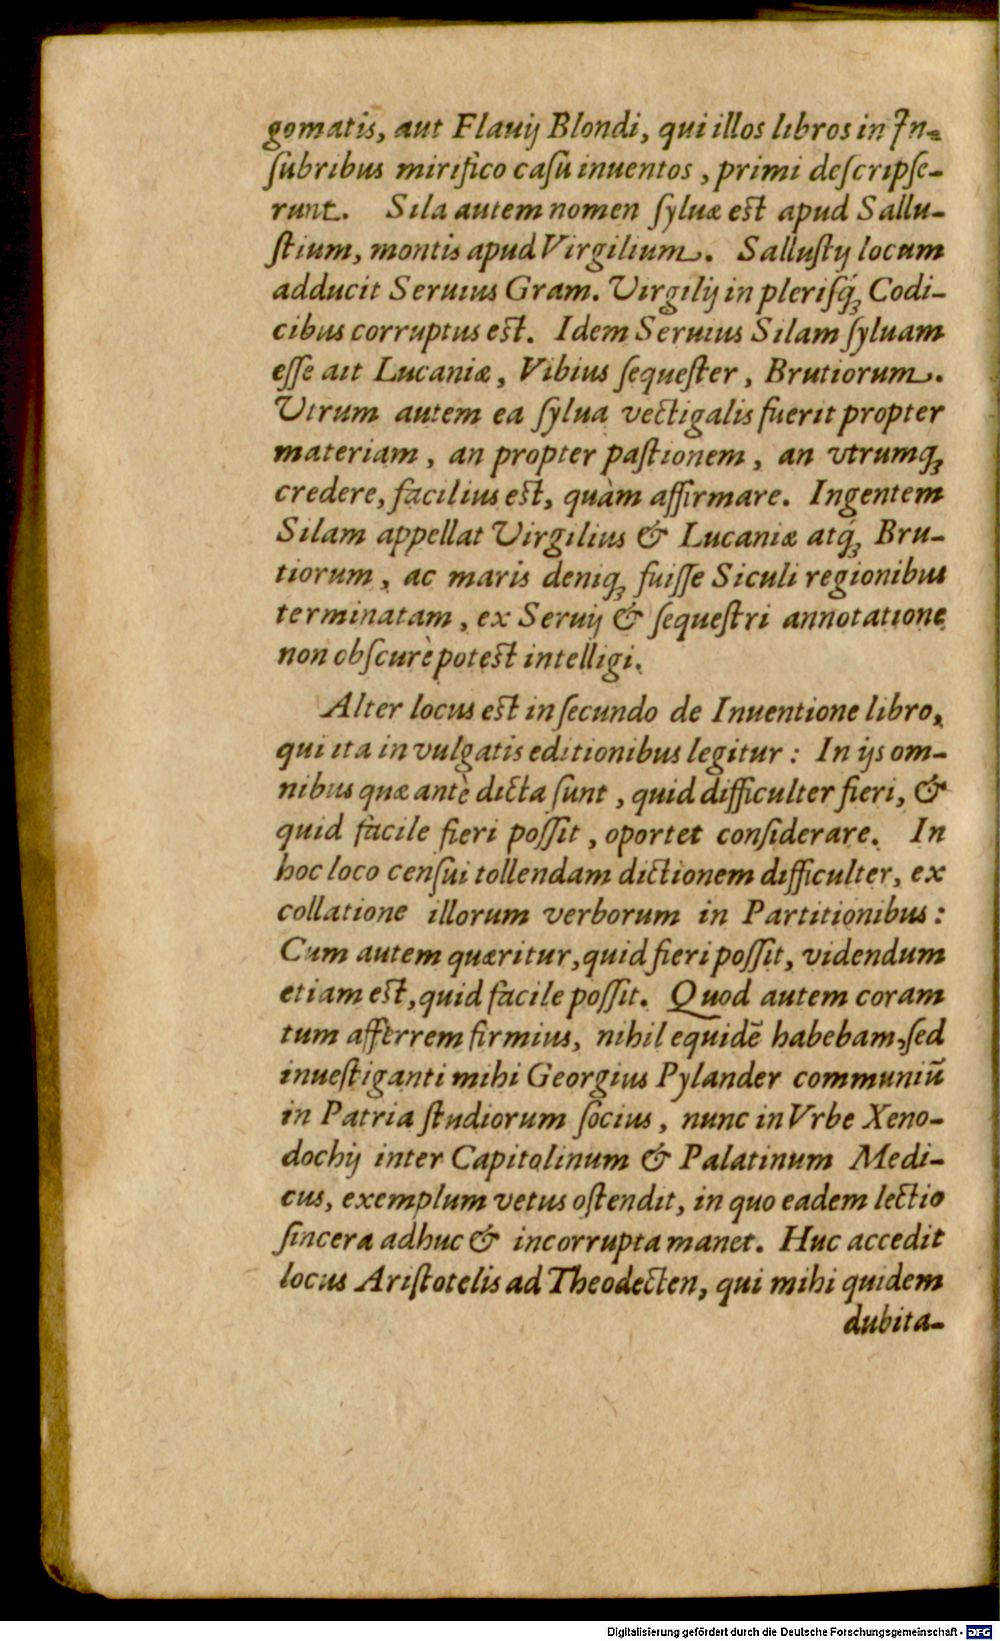 gomatis, aut Flauij Blondi, qui illos libros in In-
ſubribus mirifico caſu inuentos, primi deſcripſe-
runt. Sila autem nomen ſyluæ est apud Sallu-
ſtium, montis apud Virgilium. Salluſtij locum
adducit Seruius Gram. Virgilij in pleriſq́ꝫ Codi-
cibus corruptus est. Idem Seruius Silam ſyluam
eſſe ait Lucaniæ, Vibius ſequeſter, Brutiorum.
Vtrum autem ea ſylua vectigalis fuerit propter
materiam, an propter paſtionem, an vtrumqꝫ
credere, facilius est, quàm affirmare. Ingentem
Silam appellat Virgilius & Lucaniæ atq́ꝫ Bru-
tiorum, ac maris deniqꝫ fuiſſe Siculi regionibus
terminatam, ex Seruij & ſequeſtri annotatione
non obſcurè potest intelligi.
Alter locus est in ſecundo de Inuentione libro,
qui ita in vulgatis editionibus legitur: In ijs om-
nibus quæ antè dicta ſunt, quid difficulter fieri, &
quid facile fieri poſſit, oportet conſiderare. In
hoc loco cenſui tollendam dictionem difficulter, ex
collatione illorum verborum in Partitionibus:
Cum autem quæritur, quid fieri poſſit, videndum
etiam est, quid facile poſſit. Quod autem coram
tum afferrem firmius, nihil equidē habebam, ſed
inueſtiganti mihi Georgius Pylander communiū
in Patria ſtudiorum ſocius, nunc in Vrbe Xeno-
dochij inter Capitolinum & Palatinum Medi-
cus, exemplum vetus oſtendit, in quo eadem lectio
ſincera adhuc & incorrupta manet. Huc accedit
locus Ariſtotelis ad Theodecten, qui mihi quidem
dubita-
Digitalisierung gefördert durch die Deutsche Forschungsgemeinschaft - DFG